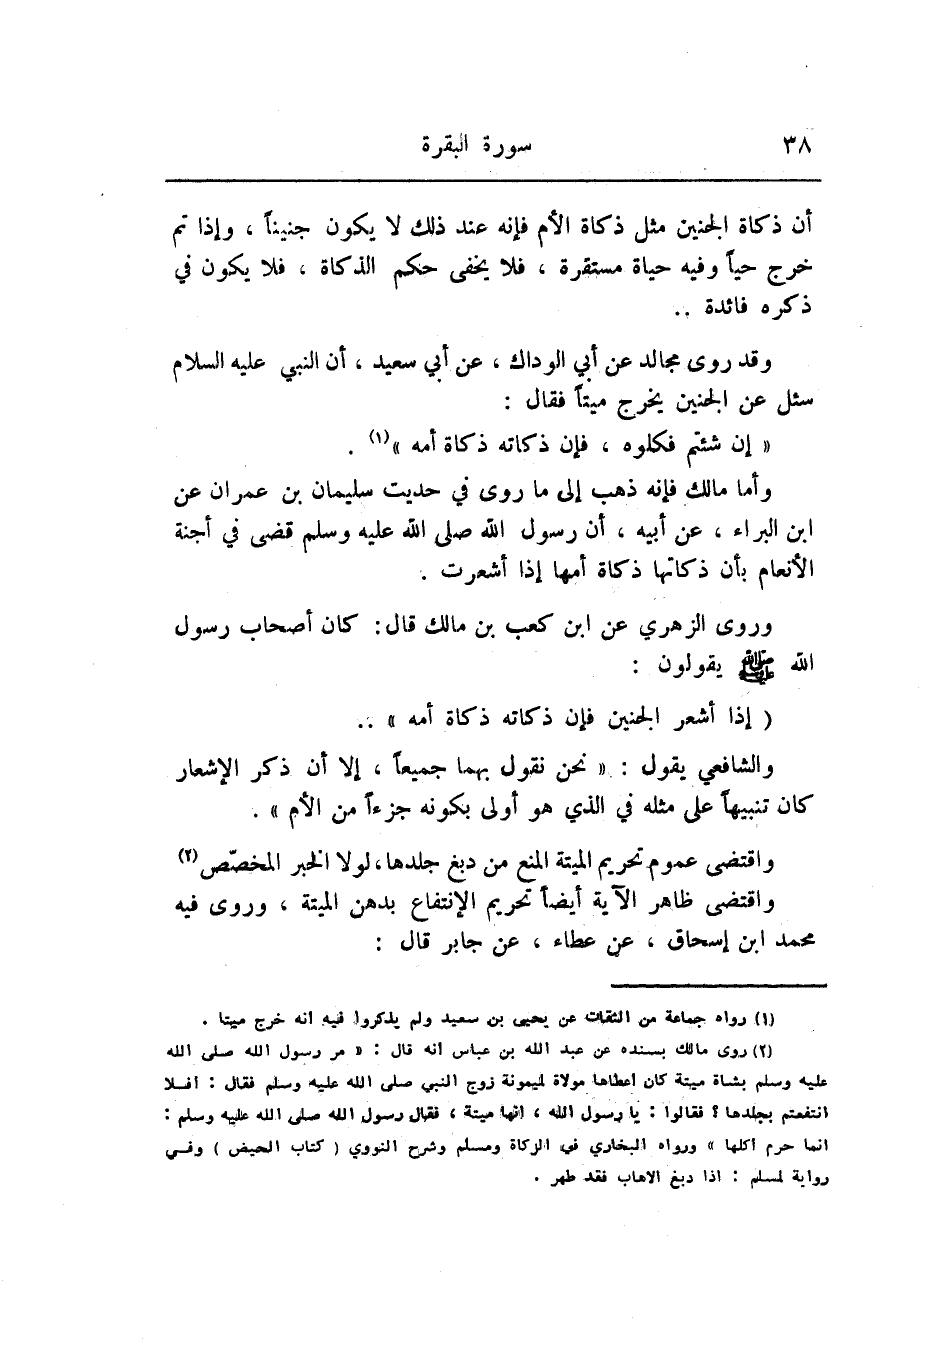 ٣٨
سورة البقرة
أن ذكاة الجنين مثل ذكاة الأم فإنه عند ذلك لا يكون جنيناً ، وإذا تم
خرج حياً وفيه حياة مستقرة ، فلا يخفى حكم الذكاة ، فلا يكون في
ذكره فائدة ..
وقد روى مجالد عن أبي الوداك ، عن أبي سعيد ، أن النبي عليه السلام
سئل عن الجنين يخرج ميتاً فقال :
« إن شئتم فكلوه ، فإن ذكاته ذكاة أمه »(١) .
وأما مالك فإنه ذهب إلى ما روى في حديث سليمان بن عمران عن
ابن البراء ، عن أبيه ، أن رسول الله صلى الله عليه وسلم قضى في أجنة
الأنعام بأن ذكاتها ذكاة أمها إذا أشعرت .
وروى الزهري عن ابن كعب بن مالك قال : كان أصحاب رسول
الله ﷺ يقولون :
( إذا أشعر الجنين فإن ذكاته ذكاة أمه » ..
والشافعي يقول : « نحن نقول بهما جميعاً ، إلا أن ذكر الإشعار
كان تنبيهاً على مثله في الذي هو أولى بكونه جزءاً من الأم » .
واقتضى عموم تحريم الميتة المنع من دبغ جلدها، لولا الخبر المخصّص(٢)
واقتضى ظاهر الآية أيضاً تحريم الإنتفاع بدهن الميتة ، وروى فيه
محمد ابن إسحاق ، عن عطاء ، عن جابر قال :
(١) رواه جماعة من الثقات عن يحيى بن سعيد ولم يذكروا فيه انه خرج ميتا .
(٢) روى مالك بسنده عن عبد الله بن عباس انه قال : « مر رسول الله صلى الله
عليه وسلم بشاة ميتة كان أعطاها مولاة لميمونة زوج النبي صلى الله عليه وسلم فقال : افلا
انتفعتم بجلدها ؟ فقالوا : يا رسول الله ، انها ميتة ، فقال رسول الله صلى الله عليه وسلم :
انما حرم اكلها » ورواه البخاري في الزكاة ومسلم وشرح النووي ( كتاب الحيض ) وفي
رواية لمسلم : اذا دبغ الاهاب فقد طهر .